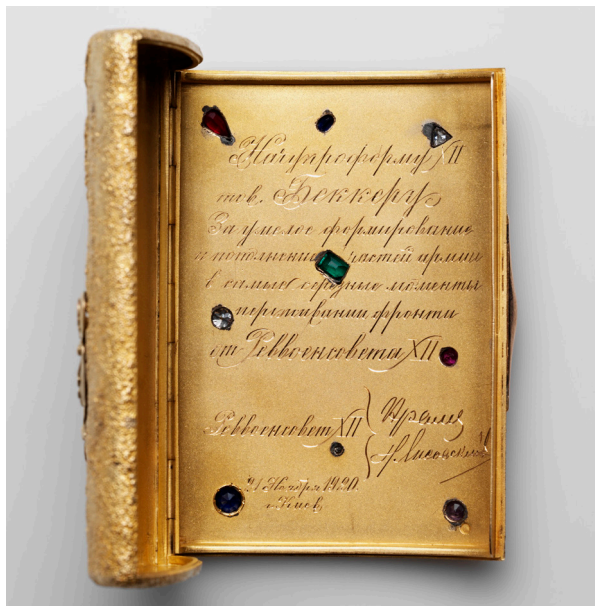 Начупроформу XII
тов. Беккеру
За умелое формирование
и пополнение частей армии
в самые серьезные моменты
переживании фронта
от Реввоенсовета XII
Реввоенсовет XII
21 Ноября 1920.
г. Киев